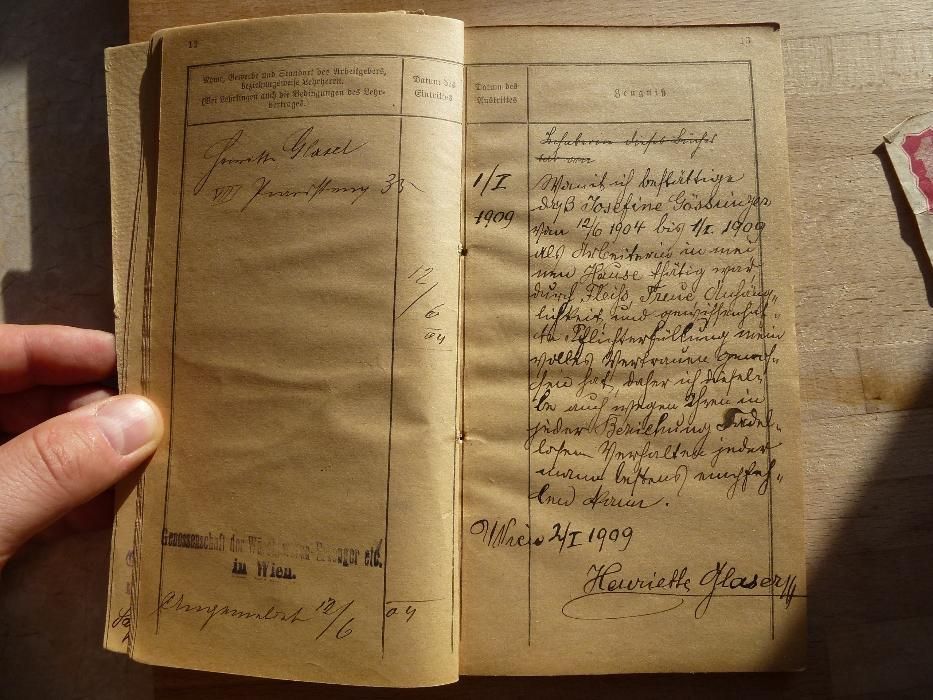 12
Name, Gewerbe und Standort des Arbeitgebers,
beziehungsweise Lehrherrn.
(Bei Lehrlingen auch die Bedingungen des Lehr-
vertrages.
Datum des
Eintrittes
Henriette Glaser
VIII 33
12/6
04
Genossenschaft der Wäschewaren-Erzeuger etc.
in Wien.
Angemeldet 12/6 04
13
Datum des
Austrittes
Zeugniß
Inhaberin dieses Buches
hat von
1/I
1909
Womit ich bestättige
daß Josefine Gössinger
von 12/6 1904 bis 1/I. 1909
als Arbeiterin in mei
nem Hause thätig war
durch Fleiß, Treue Anhäng„
lichkeit und gewissenhaf„
te Pflichterfüllung mein
volles Vertrauen
hat, daher ich diesel„
be auch wegen Ihren in
jeder Beziehung Tadel„
losen Verhalten jeder
mann bestens empfeh„
len kann.
Wien 2/I 1909
Henriette Glaser